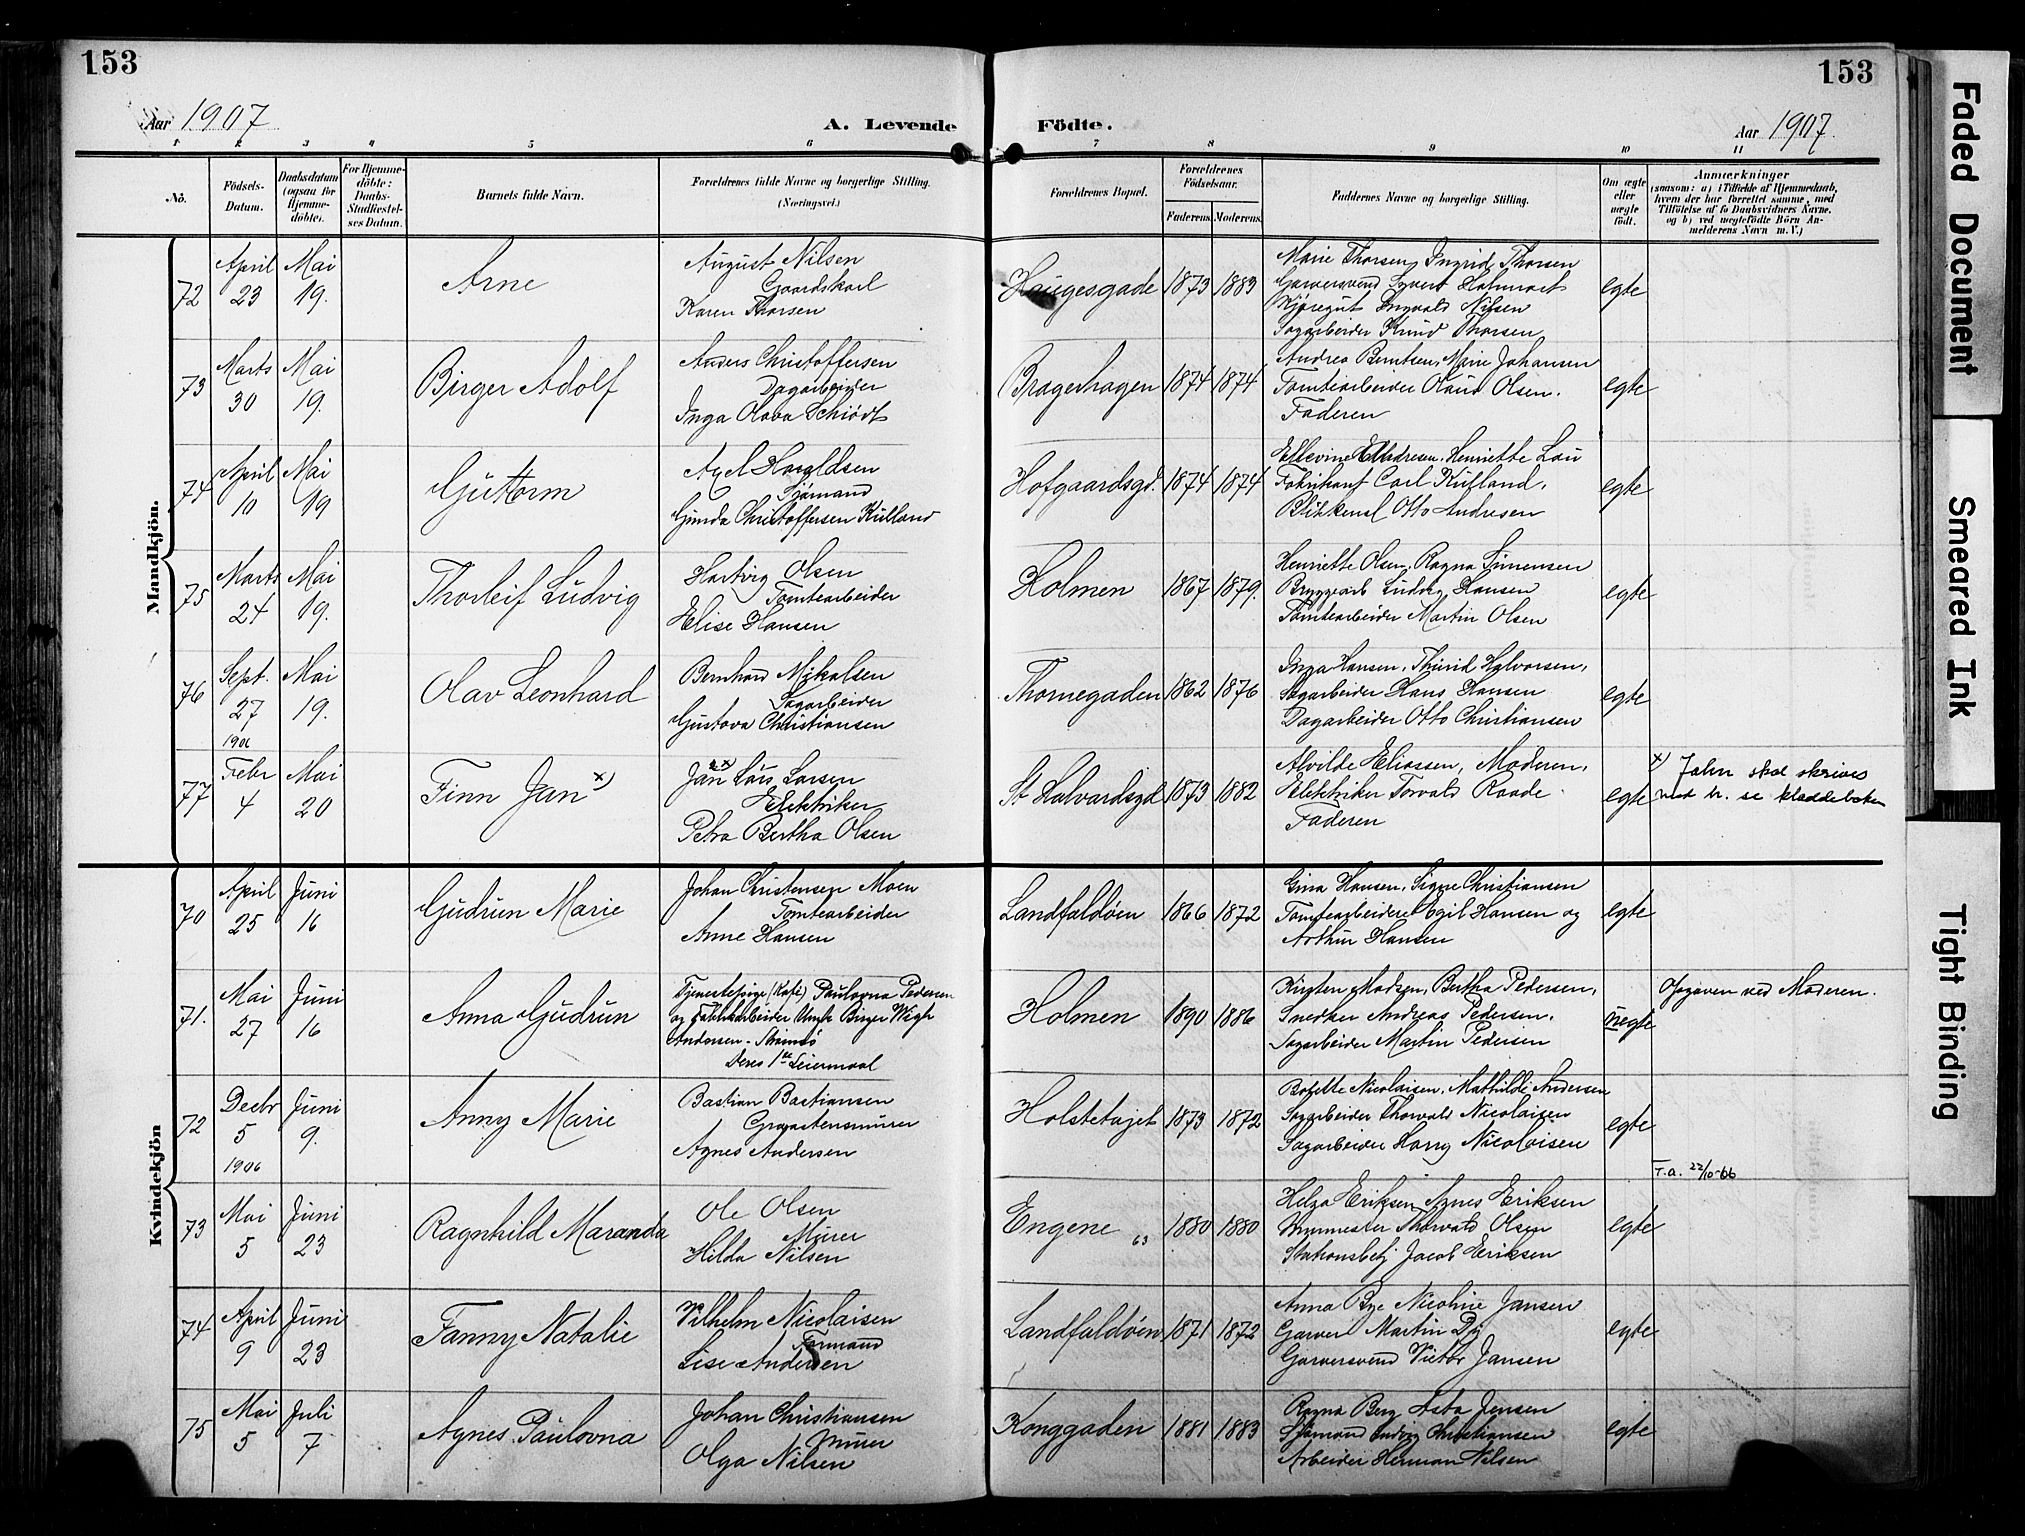 153
153
Aar 1907
A. Levende
Födte.
Aar 1907.
1 2 3 4 5 6 7 8 9 10 11
No.
Födsels-Datum.
Daabsdatum (ogsaa for Hjemmedöbte).
For Hjemmedöbte: Daabs-Stadfæstelses Datum.
Barnets fulde Navn.
Forældrenes fulde Navne og borgerlige Stilling. (Næringsvei.)
Forældrenes Bopæl.
Forældrenes Födselsaar.
Faderens. Moderens.
Faddernes Navne og borgerlige Stilling.
Om ægte eller uægte födt.
Anmærkninger
(saasom: a) i Tilfælde af Hjemmedaab, hvem der har forrettet samme, med Tilföielse af to Daabsvidners Navne. b) ved uægtefödte Börn Anmelderens Navn m. V.)
Mandkjön.
72
April 23
Mai 19.
Arne
August Nilsen
Gaardskarl
Karen Thorsen
Haugesgade
1873 1883
Marie Thorsen, Ingrid Thorsen
Garversvend Syvert
Kjøregut Ingvald Nilsen
Sagarbeider Knud Thorsen
egte
73
Marts 30
Mai 19.
Birger Adolf
Anders Christoffersen
Dagarbeider
Inga Olava Schiödt
Bragerhagen
1874 1874
Andrea Berntsen, Marie Johansen
Tomtearbeider Olaus Olsen.
Faderen
egte
74
April 10
Mai 19
Guttorm
Axel Haraldsen
Sjømand
Gunda Christoffersen Kulland
Hofgaardsgd.
1874 1874
Ellevine Andresen, Henriette Lau
Fabrikant Carl Kufland,
Blikkensl Otto Andresen
egte
75
Marts 24
Mai 19.
Thorleif Ludvig
Hartvig Olsen
Tomtearbeider
Elise Hansen
Holmen
1867 1879.
Henriette Olsen, Ragna Simensen
Bryggearb Ludvig Hansen
Tomtearbeider Martin Olsen
egte
76
Sept. 27 1906
Mai 19.
Olav Leonhard
Bernhard Mikalsen
Sagarbeider
Gustava Christiansen
Thornegaden
1862 1876
Inga Hansen, Thurid Halvorsen,
Sagarbeider Hans Hansen
Dagarbeider Otto Christiansen
egte
77
Febr 4
Mai 20
Finn Jan x)
Jan x Lars Larsen
Elektriker
Petra Bertha Olsen
St Halvardsgd
1873 1882
Alvilde Eliassen, Moderen,
Elektriker Torvald Raade.
Faderen
egte
x) Jahn skal skrives
med h. se kladdeboken
Kvindekjön
70
April 25
Juni 16
Gudrun Marie
Johan Christensen Moen
Tomtearbeider
Anne Hansen
Landfaldöen
1866 1872
Gina Hansen, Signe Christiansen
Tomtearbeidere Egil Hansen og
Arthur Hansen
egte
71.
Mai 27
Juni 16
Anna Gudrun
Tjenestepige (Kafé) Paulovna Pedersen
og Fabrikarbeider Ungk Birger Wigh
Andersen - Strømsö
Deres 1ste Leiermaal
Holmen
1890 1886
Kirsten Madsen, Bertha Pedersen,
Snedker Andreas Pedersen.
Sagarbeider Martin Pedersen
uegte
Opgaven ved Moderen.
72
Decbr 5 1906
Juni 9.
Anny Marie
Bastian Bastiansen
Graastensmurer
Agnes Andersen
Holstetajet
1873 1872
Bolette Nicolaisen, Mathilde Andersen
Sagarbeider Thorvald Nicolaisen
Sagarbeider Harry Nicolaisen
egte
T.a. 22/10-66
73
Mai 5
Juni 23
Ragnhild Maranda
Ole Olsen
Murer
Hilda Nilsen
Engene 63
1880 1880
Helga Eriksen, Agnes Eriksen
Thorvald Olsen
Stationsbetj Jacob Eriksen
egte
74
April 9
Juni 23
Fanny Natalie
Vilhelm Nicolaisen
Formand
Lise Andersen
Landfaldöen
1871 1872
Anna Bye Nicoline Jansen
Garver Martin By
Garversvend Victor Jansen
egte
75
Mai 5
Juli 7
Agnes Paulovna
Johan Christiansen
Murer
Olga Nilsen
Konggaden
1881 1883
Ragna Berg Asta Jensen
Sjømand Ludvig Christiansen
Arbeider Herman Nilsen
egte
Faded Document
Smeared Ink
Tight Binding